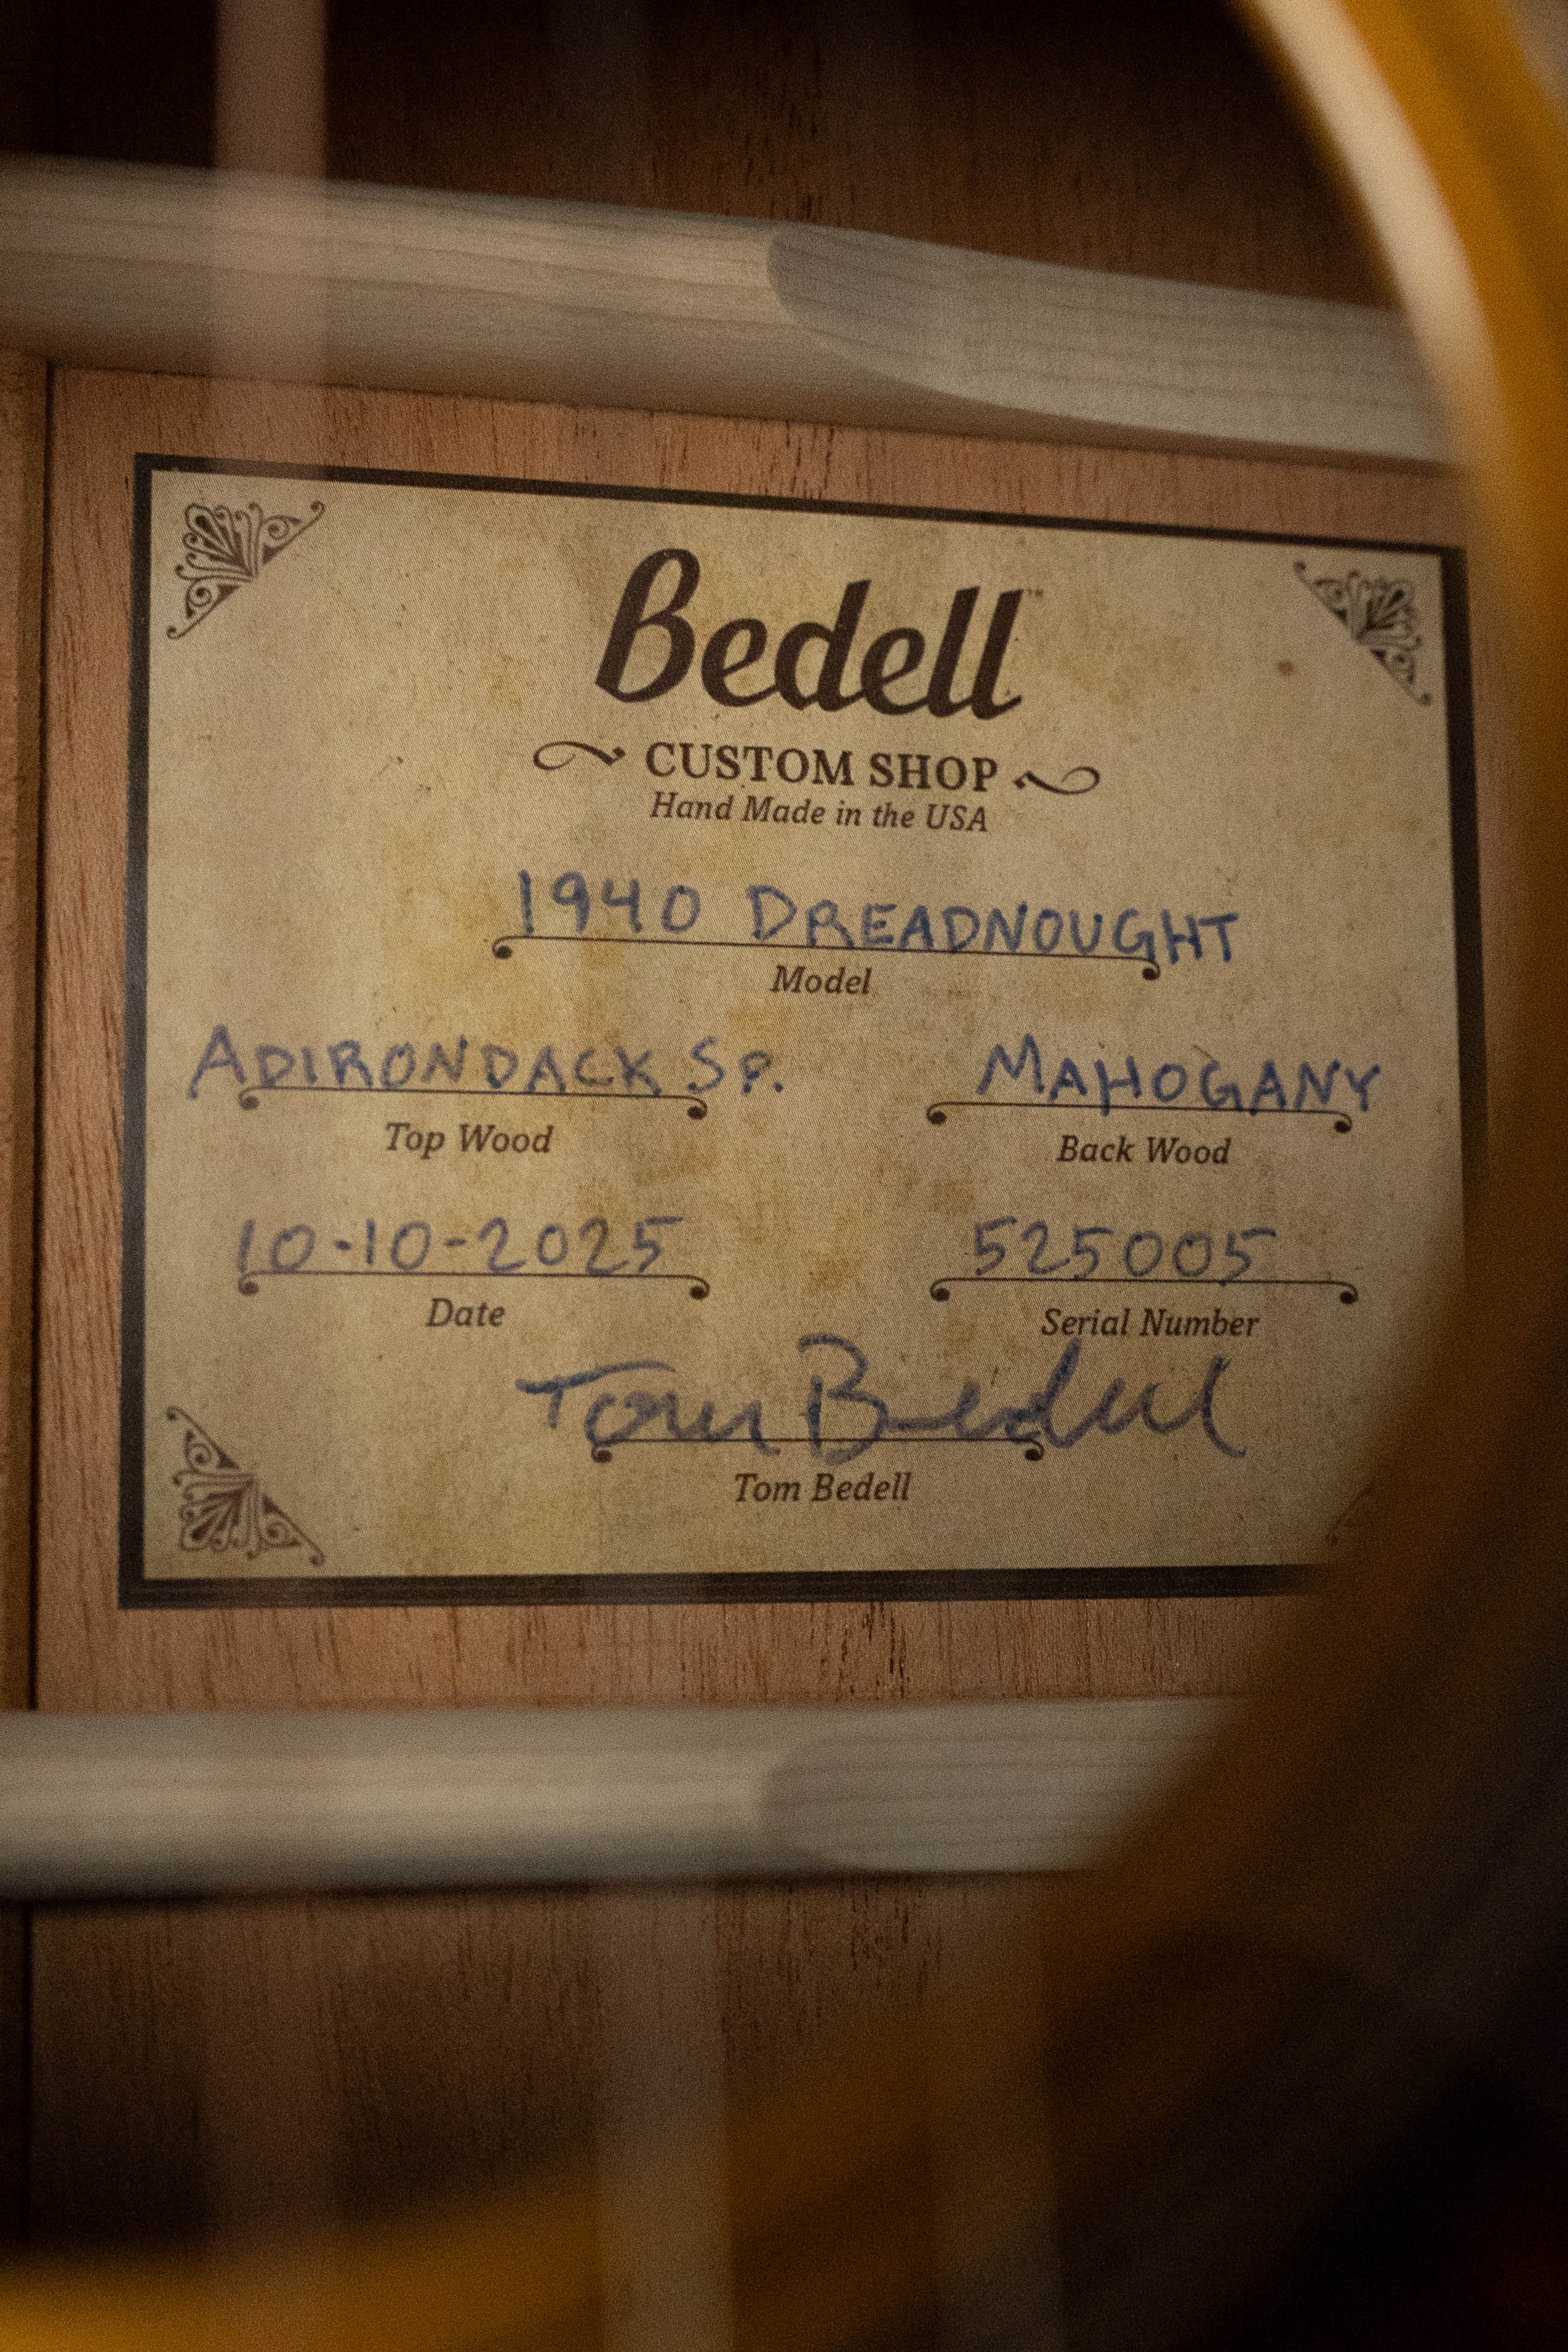 Bedell™
CUSTOM SHOP
Hand Made in the USA
1940 DREADNOUGHT
Model
ADIRONDACK SP. MAHOGANY
Top Wood Back Wood
10-10-2025 525005
Date Serial Number
Tom Bedell
Tom Bedell